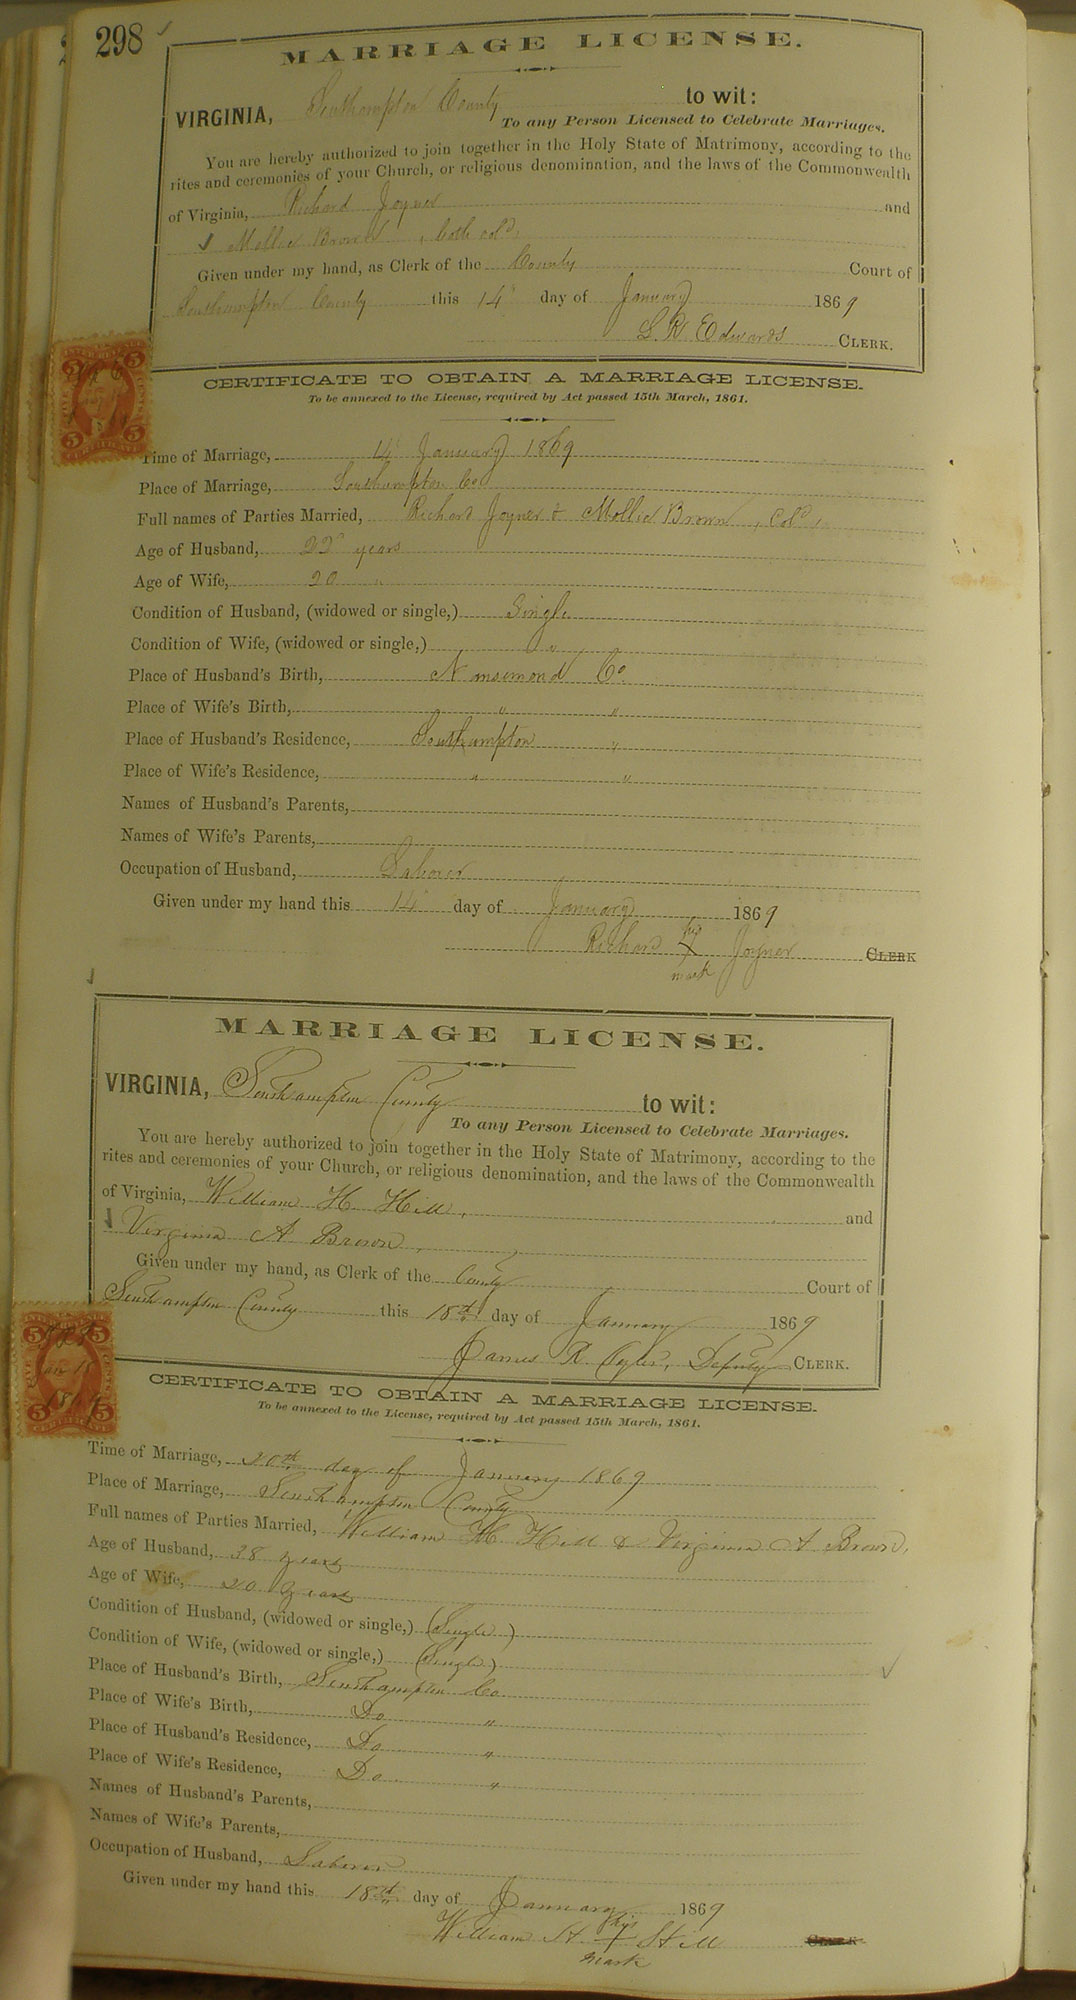 298
MARRIAGE LICENSE.
VIRGINIA, Southampton County to wit:
To any Person Licensed to Celebrate Marriages.
You are hereby authorized to join together in the Holy State of Matrimony, according to the
rites and ceremonies of your Church, or religious denomination, and the laws of the Commonwealth
of Virginia, Richard Joyner and
✓ Mollie Brown, both cold,
Given under my hand, as Clerk of the County Court of
Southampton County this 14" day of January 1869
L. R. Edwards CLERK.
CERTIFICATE TO OBTAIN A MARRIAGE LICENSE.
To be annexed to the License, required by Act passed 15th March, 1861.
Time of Marriage, 14" January 1869
Place of Marriage, Southampton Co
Full names of Parties Married, Richard Joyner & Mollie Brown, Cold,
Age of Husband, 22 years
Age of Wife, 20 "
Condition of Husband, (widowed or single,) Single
Condition of Wife, (widowed or single,) "
Place of Husband's Birth, Nansemond Co
Place of Wife's Birth, " "
Place of Husband's Residence, Southampton "
Place of Wife's Residence, " "
Names of Husband's Parents,
Names of Wife's Parents,
Occupation of Husband, Laborer
Given under my hand this 14" day of January 1869
his
Richard X Joyner CLERK
mark
MARRIAGE LICENSE.
VIRGINIA, Southampton County to wit:
To any Person Licensed to Celebrate Marriages.
You are hereby authorized to join together in the Holy State of Matrimony, according to the
rites and ceremonies of your Church, or religious denomination, and the laws of the Commonwealth
of Virginia, William H. Hill, and
✓ Virginia A Brown,
Given under my hand, as Clerk of the County Court of
Southampton County this 18th day of January 1869
James R. Deputy CLERK.
CERTIFICATE TO OBTAIN A MARRIAGE LICENSE.
To be annexed to the License, required by Act passed 15th March, 1861.
Time of Marriage, 20th day of January 1869
Place of Marriage, Southampton County
Full names of Parties Married, William H. Hill & Virginia A Brown,
Age of Husband, 38 years
Age of Wife, 20 years
Condition of Husband, (widowed or single,) (Single)
Condition of Wife, (widowed or single,) (Single)
Place of Husband's Birth, Southampton Co
Place of Wife's Birth, Do "
Place of Husband's Residence, Do "
Place of Wife's Residence, Do "
Names of Husband's Parents,
Names of Wife's Parents,
Occupation of Husband, Laborer
Given under my hand this 18th day of January 1869
his
William H. X Hill CLERK
mark